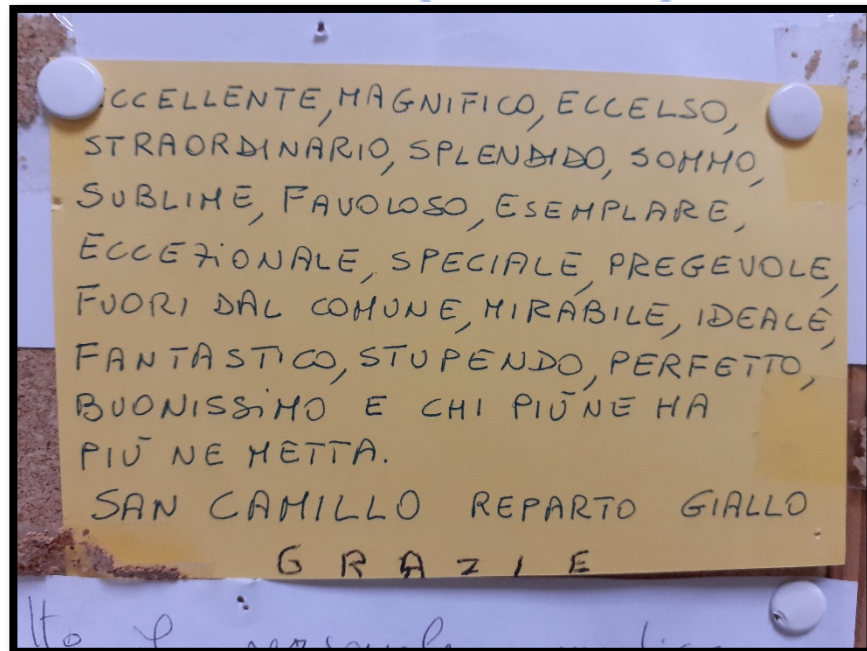 ECCELLENTE, MAGNIFICO, ECCELSO,
STRAORDINARIO, SPLENDIDO, SOMMO,
SUBLIME, FAVOLOSO, ESEMPLARE,
ECCEZIONALE, SPECIALE, PREGEVOLE,
FUORI DAL COMUNE, MIRABILE, IDEALE,
FANTASTICO, STUPENDO, PERFETTO,
BUONISSIMO E CHI PIÙ NE HA
PIÙ NE METTA.
SAN CAMILLO REPARTO GIALLO
GRAZIE